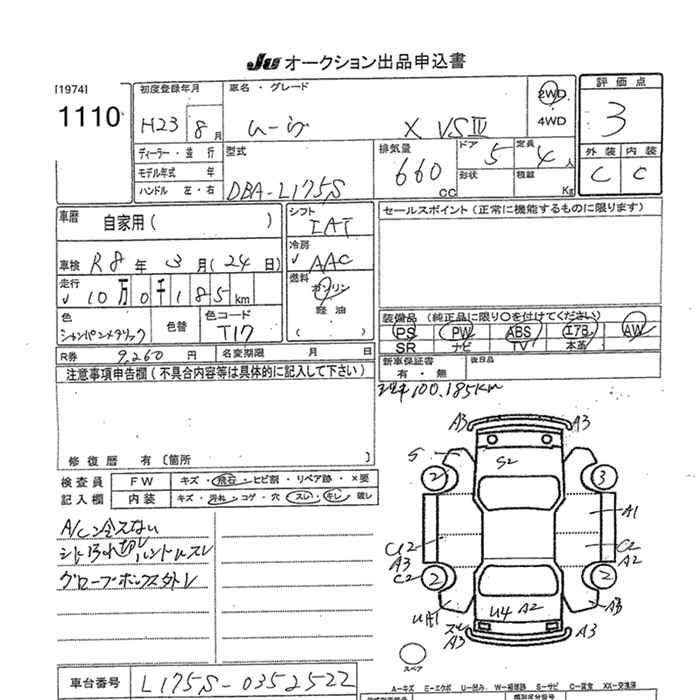 JU オークション出品申込書
[1974]
1110
初度登録年月
H23 8月
車名・グレード
ムーヴ X VSⅢ
2WD
4WD
評価点
3
ディーラー・並行
モデル年式 年
ハンドル 左・右
型式
DBA-L175S
排気量
660 cc
ドア
5
定員
4人
形状
積載
Kg
外装 内装
C C
車歴
自家用( )
車検 R8年3月(24日)
走行
✓ 10万0千185km
色
シャンパンメタリック
色替
色コード
T17
シフト
IAT
冷房
✓ AAC
燃料
ガソリン
軽油
( )
セールスポイント(正常に機能するものに限ります)
装備品(純正品に限り○を付けてください)
PS PW ABS エアB AW
SR ナビ TV 本革
R券 9,260円
名変期限 月 日
新車保証書
有・無
後日品
注意事項申告欄(不具合内容等は具体的に記入して下さい)
100,185km
修復歴 有[箇所 ]
検査員
記入欄
FW キズ・飛石・ヒビ割・リペア跡・×要
内装 キズ・汚れ・コゲ・穴・スレ・キレ・破レ
A/C冷えない
シート汚れ切レ ハンドルスレ
グローブボックス外レ
A3 A3
S S2
2 3
A1
C2
A2
A3
C2
2 2
U4 A2
A3
A3
スペア
車台番号 L175S-0352522
A-キズ E-エクボ U-凹み W-補修跡 S-サビ C-腐食 XX-交換済